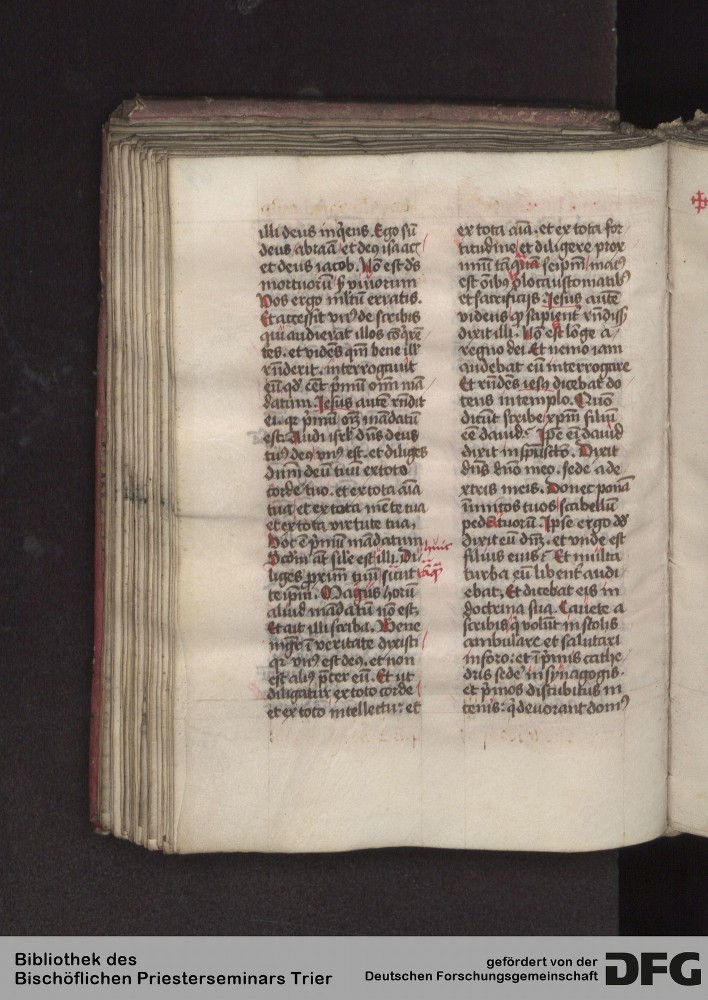 illi deus inq̄ens. Ego sū
deus abraā et deꝰ isaac
et deus iacob. Nō est dš
mortuorū sȝ viuorum
Vos ergo mltū erratis.
Et accessit vnꝰ de scribis
qui audierat illos cōq̄re
tes. et vidēs qm̄ bene ill̓
rn̄derit. interrogauit
eū qd̓ eēt p̓mū om̄ mā
datum. Jesus autē rn̄dit
ei. qꝛ p̓mū oīȝ mādatū
est. Audi isrl̓ dn̄s deus
tuꝰ deꝰ vnꝰ est. et diliges
dnm̄ deū tuū ex toto
corde tuo. et ex tota aīa
tua et ex tota mēte tua
et ex tota virtute tua.
Hoc ē p̓mū mandatum
Scd̓m at̄ sile est illi. Di
liges proxim̄ tuū sicut
tāq̄
te ip̄m. Maius horū
aliud mādatū nō est.
Et ait illi scriba. Bene
mgr̄ ī veritate dixisti
qꝛ vnꝰ est deꝰ. et non
est aliꝰ p̄ter eū. Et ut
diligatur ex toto corde
et ex toto intellectu: et
ex tota aīa. et ex tota for
titudine et diligere prox
imū tāq̄ seip̄m maiꝰ
est oībꝰ holocaustomatibꝰ
et sacrificijs. Jesus autē
videns qꝙ sapient̓ rn̄diss̓
dixit illi. Nō est lōge a
regno dei. Et nemo iam
audebat eū interrogare
Et rn̄dēs iesꝰ dicebat do
cens in templo. Quō
dicūt scribe xp̄m filiū
eē dauid. Ip̄e eī dauid
dixit in sp̄usctō. Dixit
dn̄s dn̄o meo. sede a de
xtris meis. Donec ponā
inimicos tuos scabellū
pedū tuorū. Ipse ergo dd̓
dixit eū dm̄. et vnde est
filius eius. Et multa
turba eū libent̓ audi
ebat. Et dicebat eis in
doctrina sua. Cauete a
scribis q̓ volūt in stolis
ambulare et salutari
in foro: et ī p̓mis cathe
dris sede̓ in synagogis.
et p̓mos discubitus in
cenis: q̓ deuorant domꝰ
Bibliothek des
Bischöflichen Priesterseminars Trier
gefördert von der
Deutschen Forschungsgemeinschaft
DFG